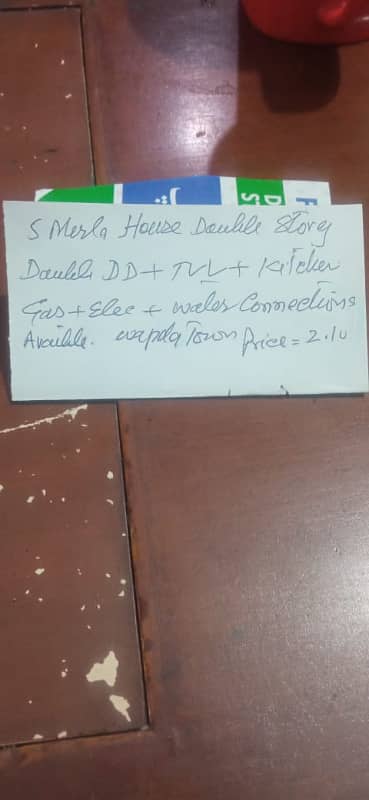 5 Merla House Double Story
Double DD + TVL + Kitchen
Gas + Elec + water Connections
Availble. wapda Town Price = 2.10